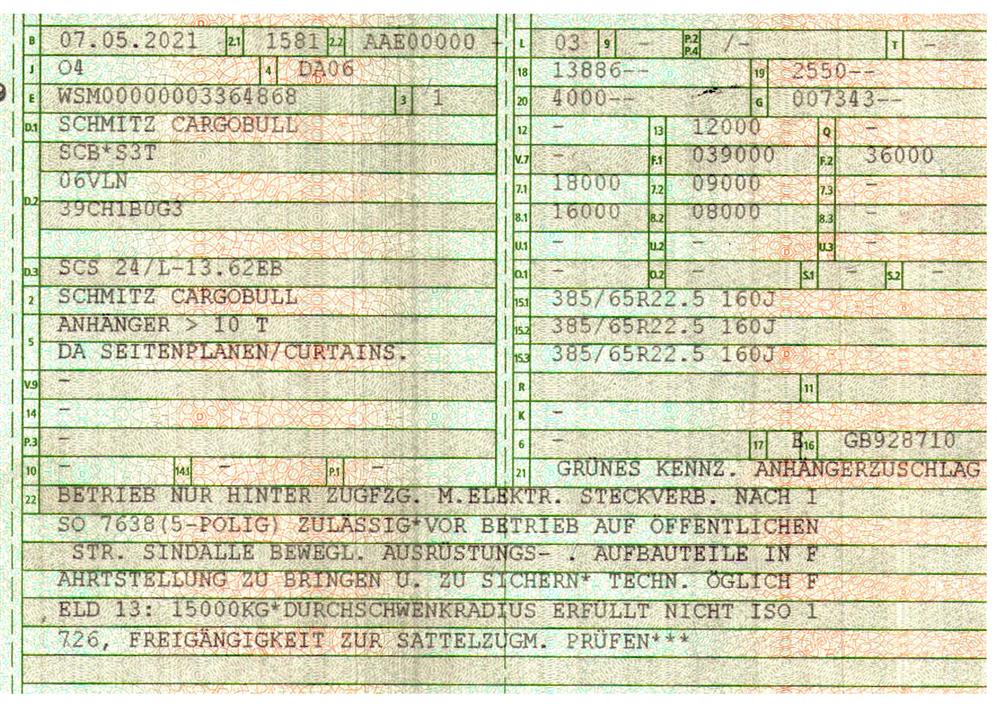 B 07.05.2021 2.1 1581 2.2 AAE00000 - L 03 9 - P.2 P.4 /- T -
J O4 4 DA06 18 13886-- 19 2550--
E WSM00000003364868 3 1 20 4000-- G 007343--
D.1 SCHMITZ CARGOBULL 12 - 13 12000 Q -
SCB*S3T V.7 - F.1 039000 F.2 36000
D.2 06VLN 7.1 18000 7.2 09000 7.3 -
39CH1B0G3 8.1 16000 8.2 08000 8.3 -
U.1 - U.2 - U.3 -
D.3 SCS 24/L-13.62EB O.1 - O.2 - S.1 - S.2 -
2 SCHMITZ CARGOBULL 15.1 385/65R22.5 160J
5 ANHÄNGER > 10 T 15.2 385/65R22.5 160J
DA SEITENPLANEN/CURTAINS. 15.3 385/65R22.5 160J
V.9 - R 11
14 - K -
P.3 - 6 - 17 E 16 GB928710
10 - 14.1 - P.1 - 21 GRÜNES KENNZ. ANHÄNGERZUSCHLAG
22 BETRIEB NUR HINTER ZUGFZG. M.ELEKTR. STECKVERB. NACH I
SO 7638(5-POLIG) ZULÄSSIG*VOR BETRIEB AUF ÖFFENTLICHEN
STR. SINDALLE BEWEGL. AUSRÜSTUNGS- . AUFBAUTEILE IN F
AHRTSTELLUNG ZU BRINGEN U. ZU SICHERN* TECHN. ÖGLICH F
ELD 13: 15000KG*DURCHSCHWENKRADIUS ERFÜLLT NICHT ISO 1
726, FREIGÄNGIGKEIT ZUR SATTELZUGM. PRÜFEN***